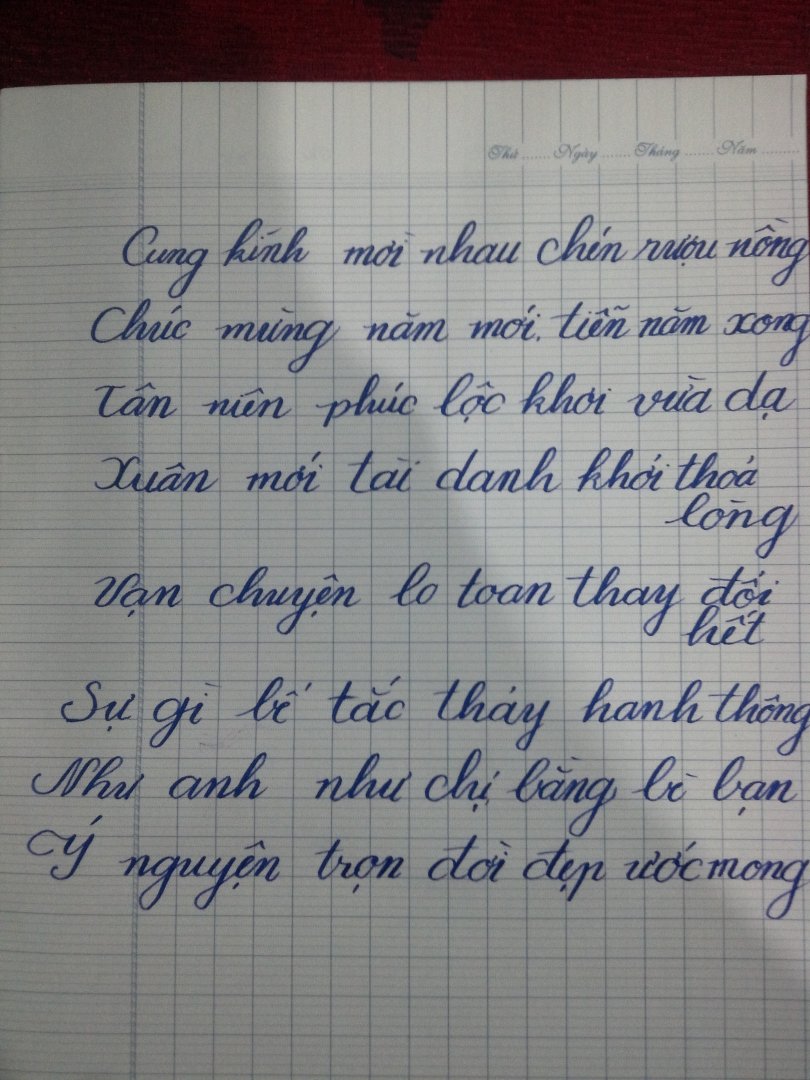 Thứ ....... Ngày ....... Tháng ....... Năm .........
Cung kính mời nhau chén rượu nồng
Chúc mừng năm mới, tiễn năm xong
Tân niên phúc lộc khơi vừa dạ
Xuân mới tài danh khởi thoả
lòng
Vạn chuyện lo toan thay đổi
hết
Sự gì bế tắc thảy hanh thông
Như anh như chị, bằng bè bạn
Ý nguyện trọn đời đẹp ước mong